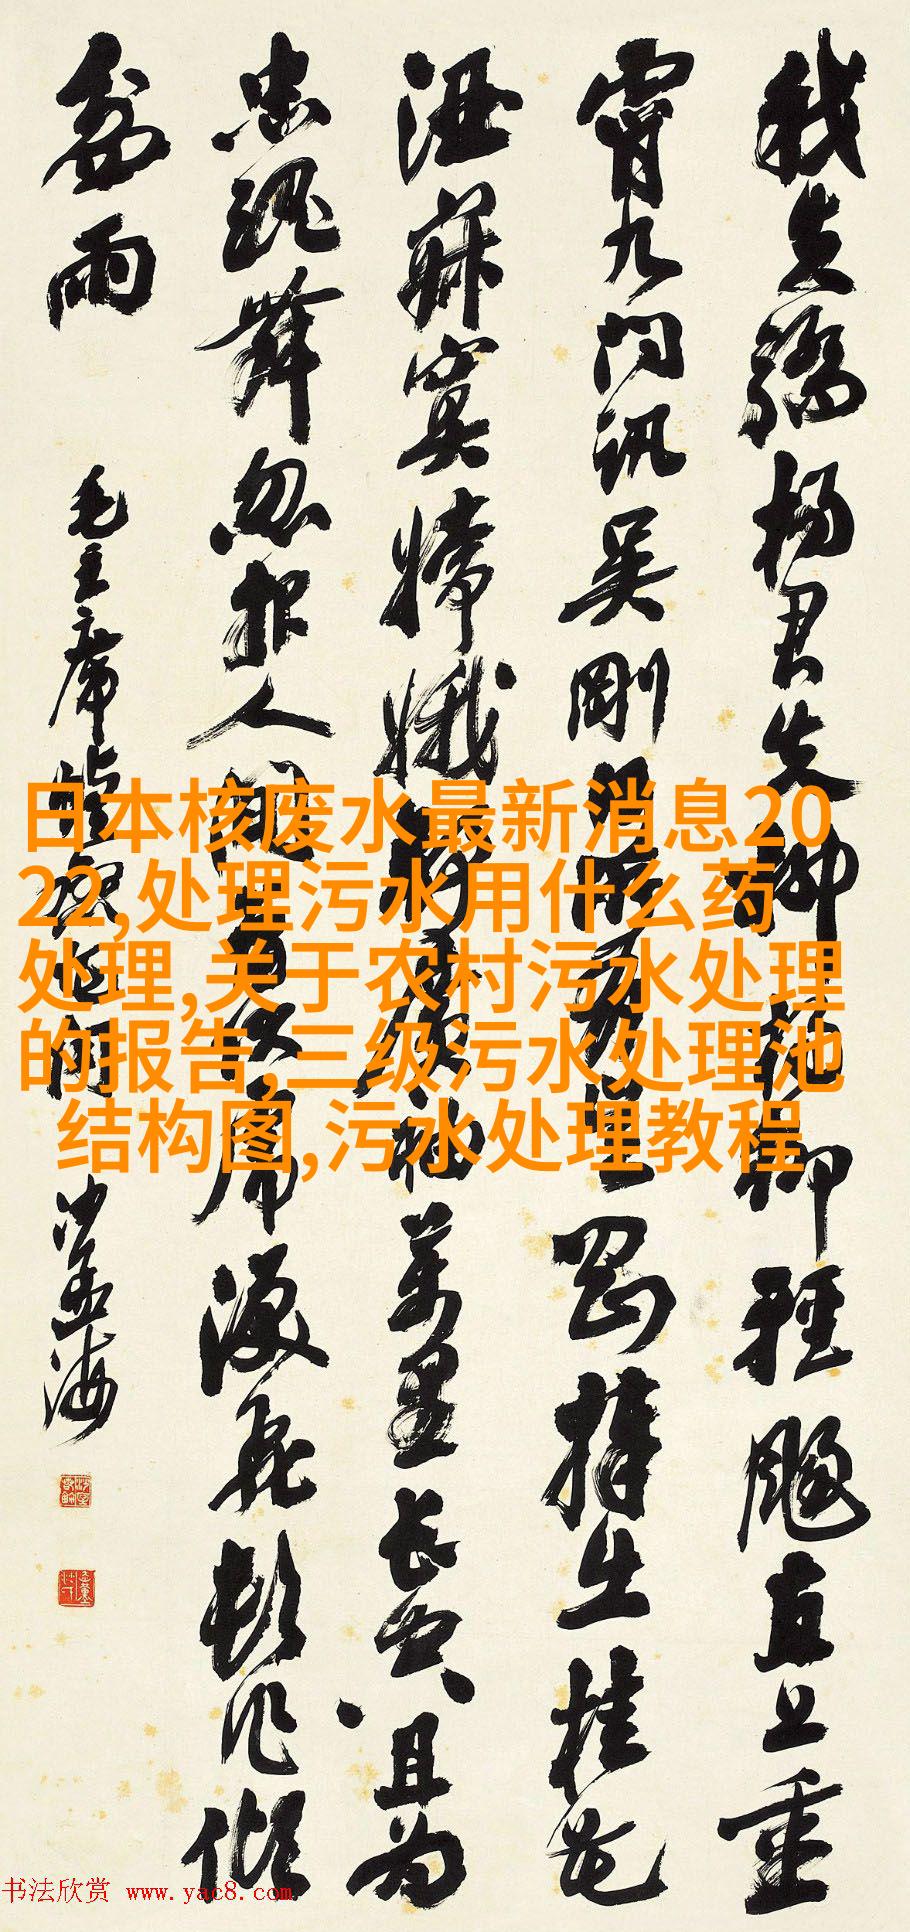 我失驕楊君失柳楊柳輕颺直上重
霄九問訊吳剛何所有吳剛捧出桂花
酒寂寞嫦娥舒廣袖萬里長空且为
忠魂舞忽报人間曾伏虎淚飛頓作傾
盆雨
毛主席
沙孟海
日本核废水最新消息20
22,处理污水用什么药
处理,关于农村污水处理
的报告,三级污水处理池
结构图,污水处理教程
书法欣赏 www.yac8.com